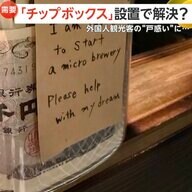 需要
「チップボックス」設置で解決？
外国人観光客の“戸惑い”に…
I am
to start
a micro brewery
Please help
with my dream
千円